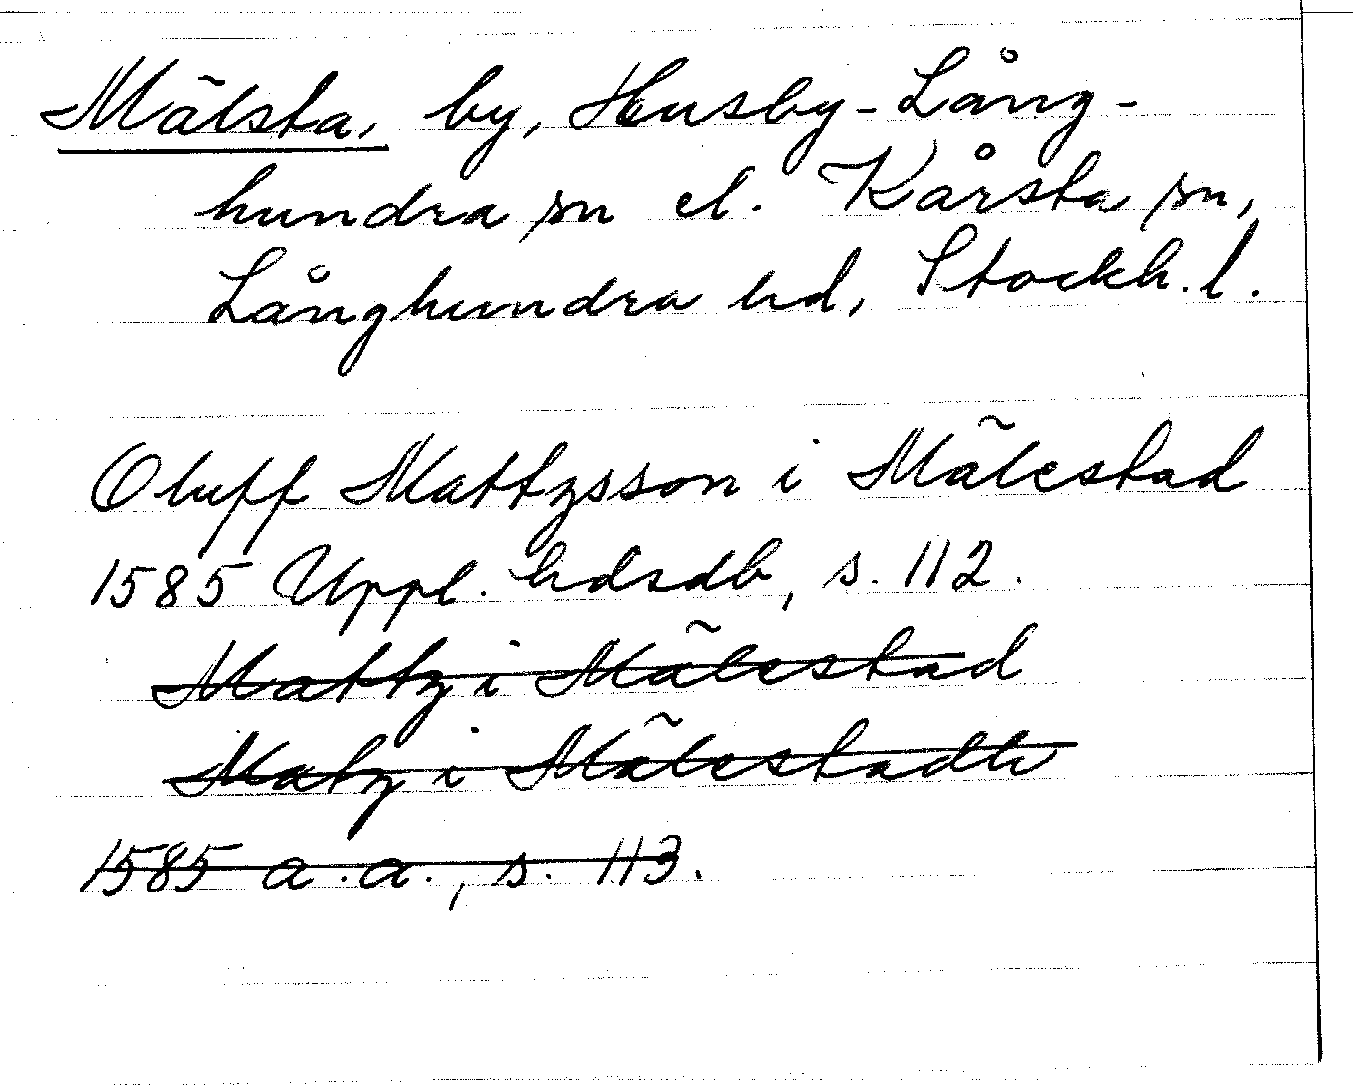 Mälsta, by, Husby-Lång-
hundra sn el. Kårsta sn,
Långhundra hd, Stockh. l.
Oluff Mattzsson i Mälestad
1585 Uppl. hdsdb, s. 112.
Mattz i Mälestad
Matz i Mälestadh
1585 a.a., s. 113.